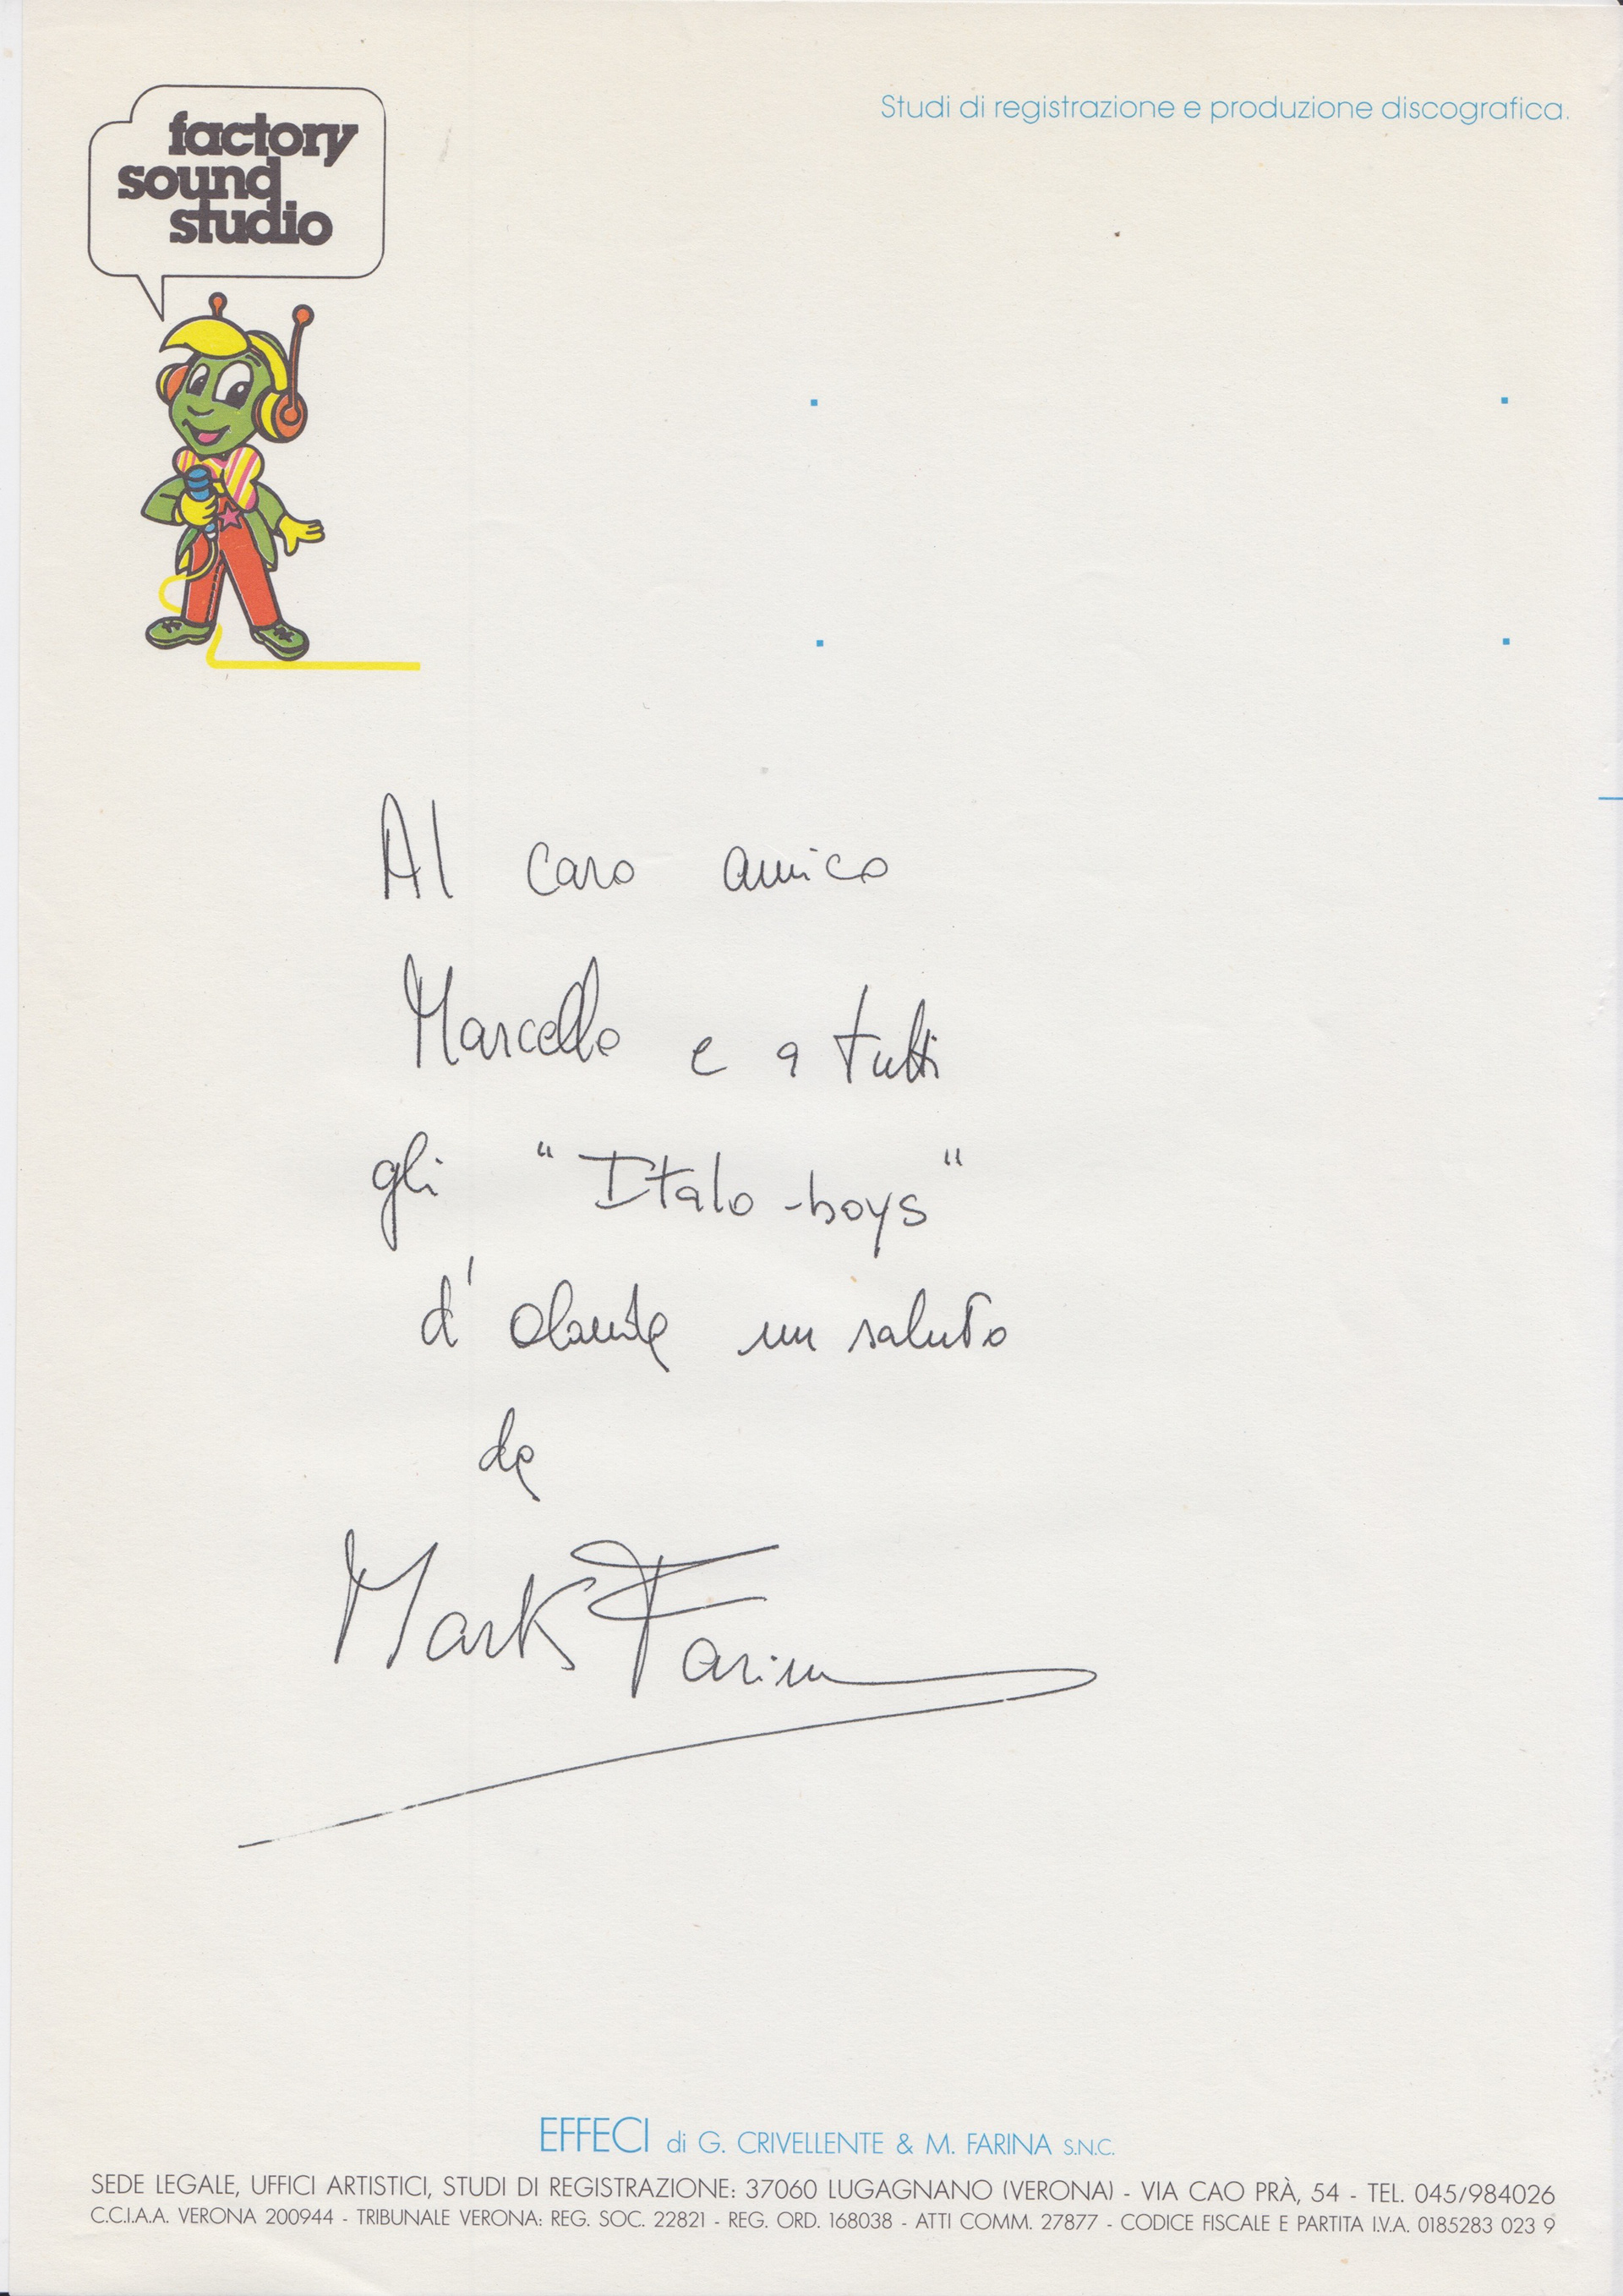 factory
sound
studio
Studi di registrazione e produzione discografica.
Al caro amico
Marcello e a tutti
gli "Italo-boys"
d'Olanda un saluto
da
Mark Farina
EFFECI di G. CRIVELLENTE & M. FARINA S.N.C.
SEDE LEGALE, UFFICI ARTISTICI, STUDI DI REGISTRAZIONE: 37060 LUGAGNANO (VERONA) - VIA CAO PRÀ, 54 - TEL. 045/984026
C.C.I.A.A. VERONA 200944 - TRIBUNALE VERONA: REG. SOC. 22821 - REG. ORD. 168038 - ATTI COMM. 27877 - CODICE FISCALE E PARTITA I.V.A. 0185283 023 9